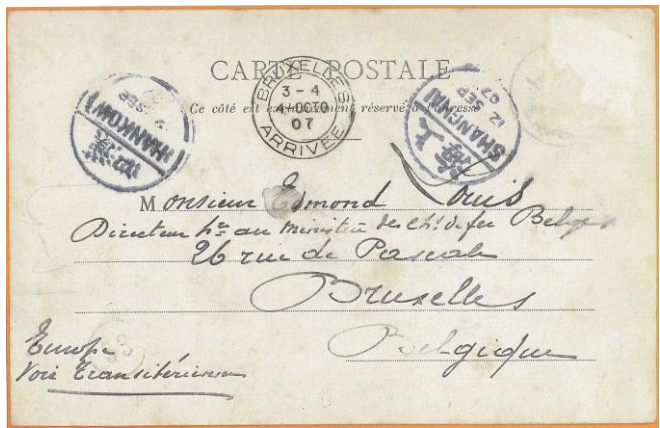 CARTE POSTALE
Ce côté est exclusivement réservé à l'adresse
BRUXELLES
3-4
4 OCTO
07
ARRIVÉE
HANKOW
SEP
漢
SHANGHAI
12 SEP
07
上海
Monsieur Edmond Louis
Directeur hre au Ministère des ch. de fer Belges
26 rue de Pascale
Bruxelles
Belgique
Europe
Voie Transsibérienne